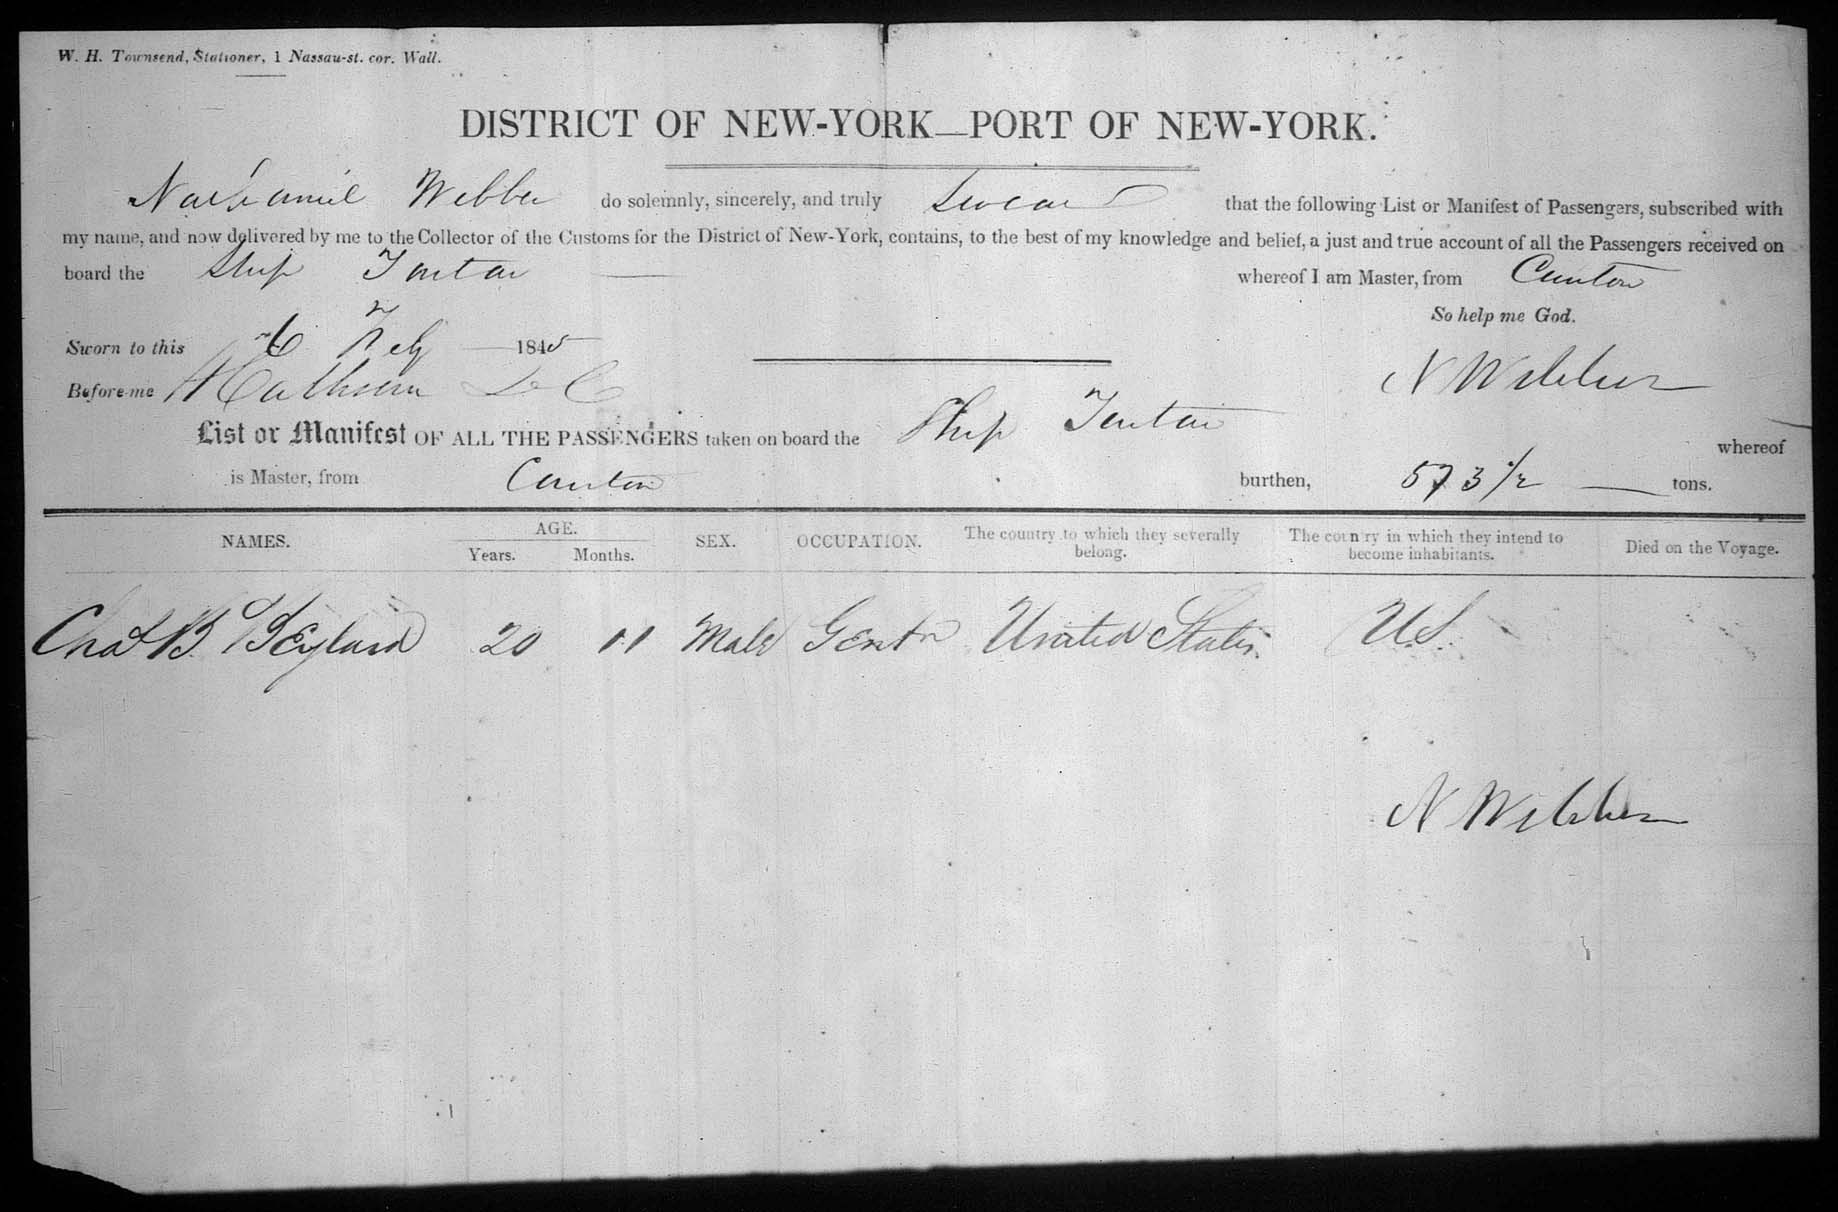 W. H. Townsend, Stationer, 1 Nassau-st. cor. Wall.
DISTRICT OF NEW-YORK—PORT OF NEW-YORK.
Nathaniel Webber do solemnly, sincerely, and truly Swear that the following List or Manifest of Passengers, subscribed with
my name, and now delivered by me to the Collector of the Customs for the District of New-York, contains, to the best of my knowledge and belief, a just and true account of all the Passengers received on
board the Ship Tartar whereof I am Master, from Canton
So help me God.
Sworn to this 6 Feby 1845
Before me D C
N Webber
List or Manifest OF ALL THE PASSENGERS taken on board the Ship Tartar whereof
is Master, from Canton burthen, 573 1/2 tons.
NAMES. AGE. Years. Months. SEX. OCCUPATION. The country to which they severally belong. The country in which they intend to become inhabitants. Died on the Voyage.
Chas B 20 11 Male Gentn United States. U.S.
N Webber